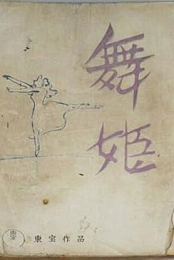 舞姫
東宝作品